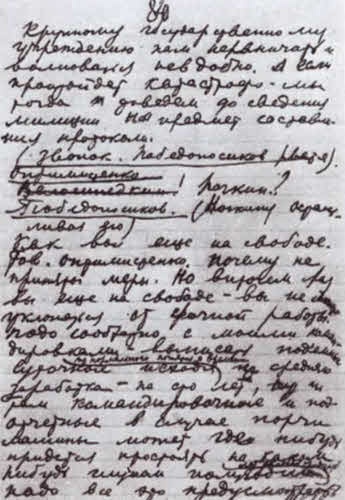 Крупному государственному
учреждению нам нервничать и
волноваться неудобно. А если
произойдет катастрофа - мы
тогда и доведем до сведения
милиции на предмет составле
ния протокола.
(Звонок. Победоносиков
Оптимистенко
Велосипедкин! Ночкин?
Победоносиков. (Ночкину
Как вы еще на свободе.
Тов. оптимистенко. почему не
приняты меры. Но впрочем раз
вы еще на свободе - вы не
уклоняться от срочной работы
надо сообразно с моими коман
дировками выписать
суточные исходя из средняго
заработка - на сто лет, ну и
там командировочные и под
отчетные в случае порчи
машины может где нибудь
придется простоять на каком
нибудь глухом
надо все это предусмотреть